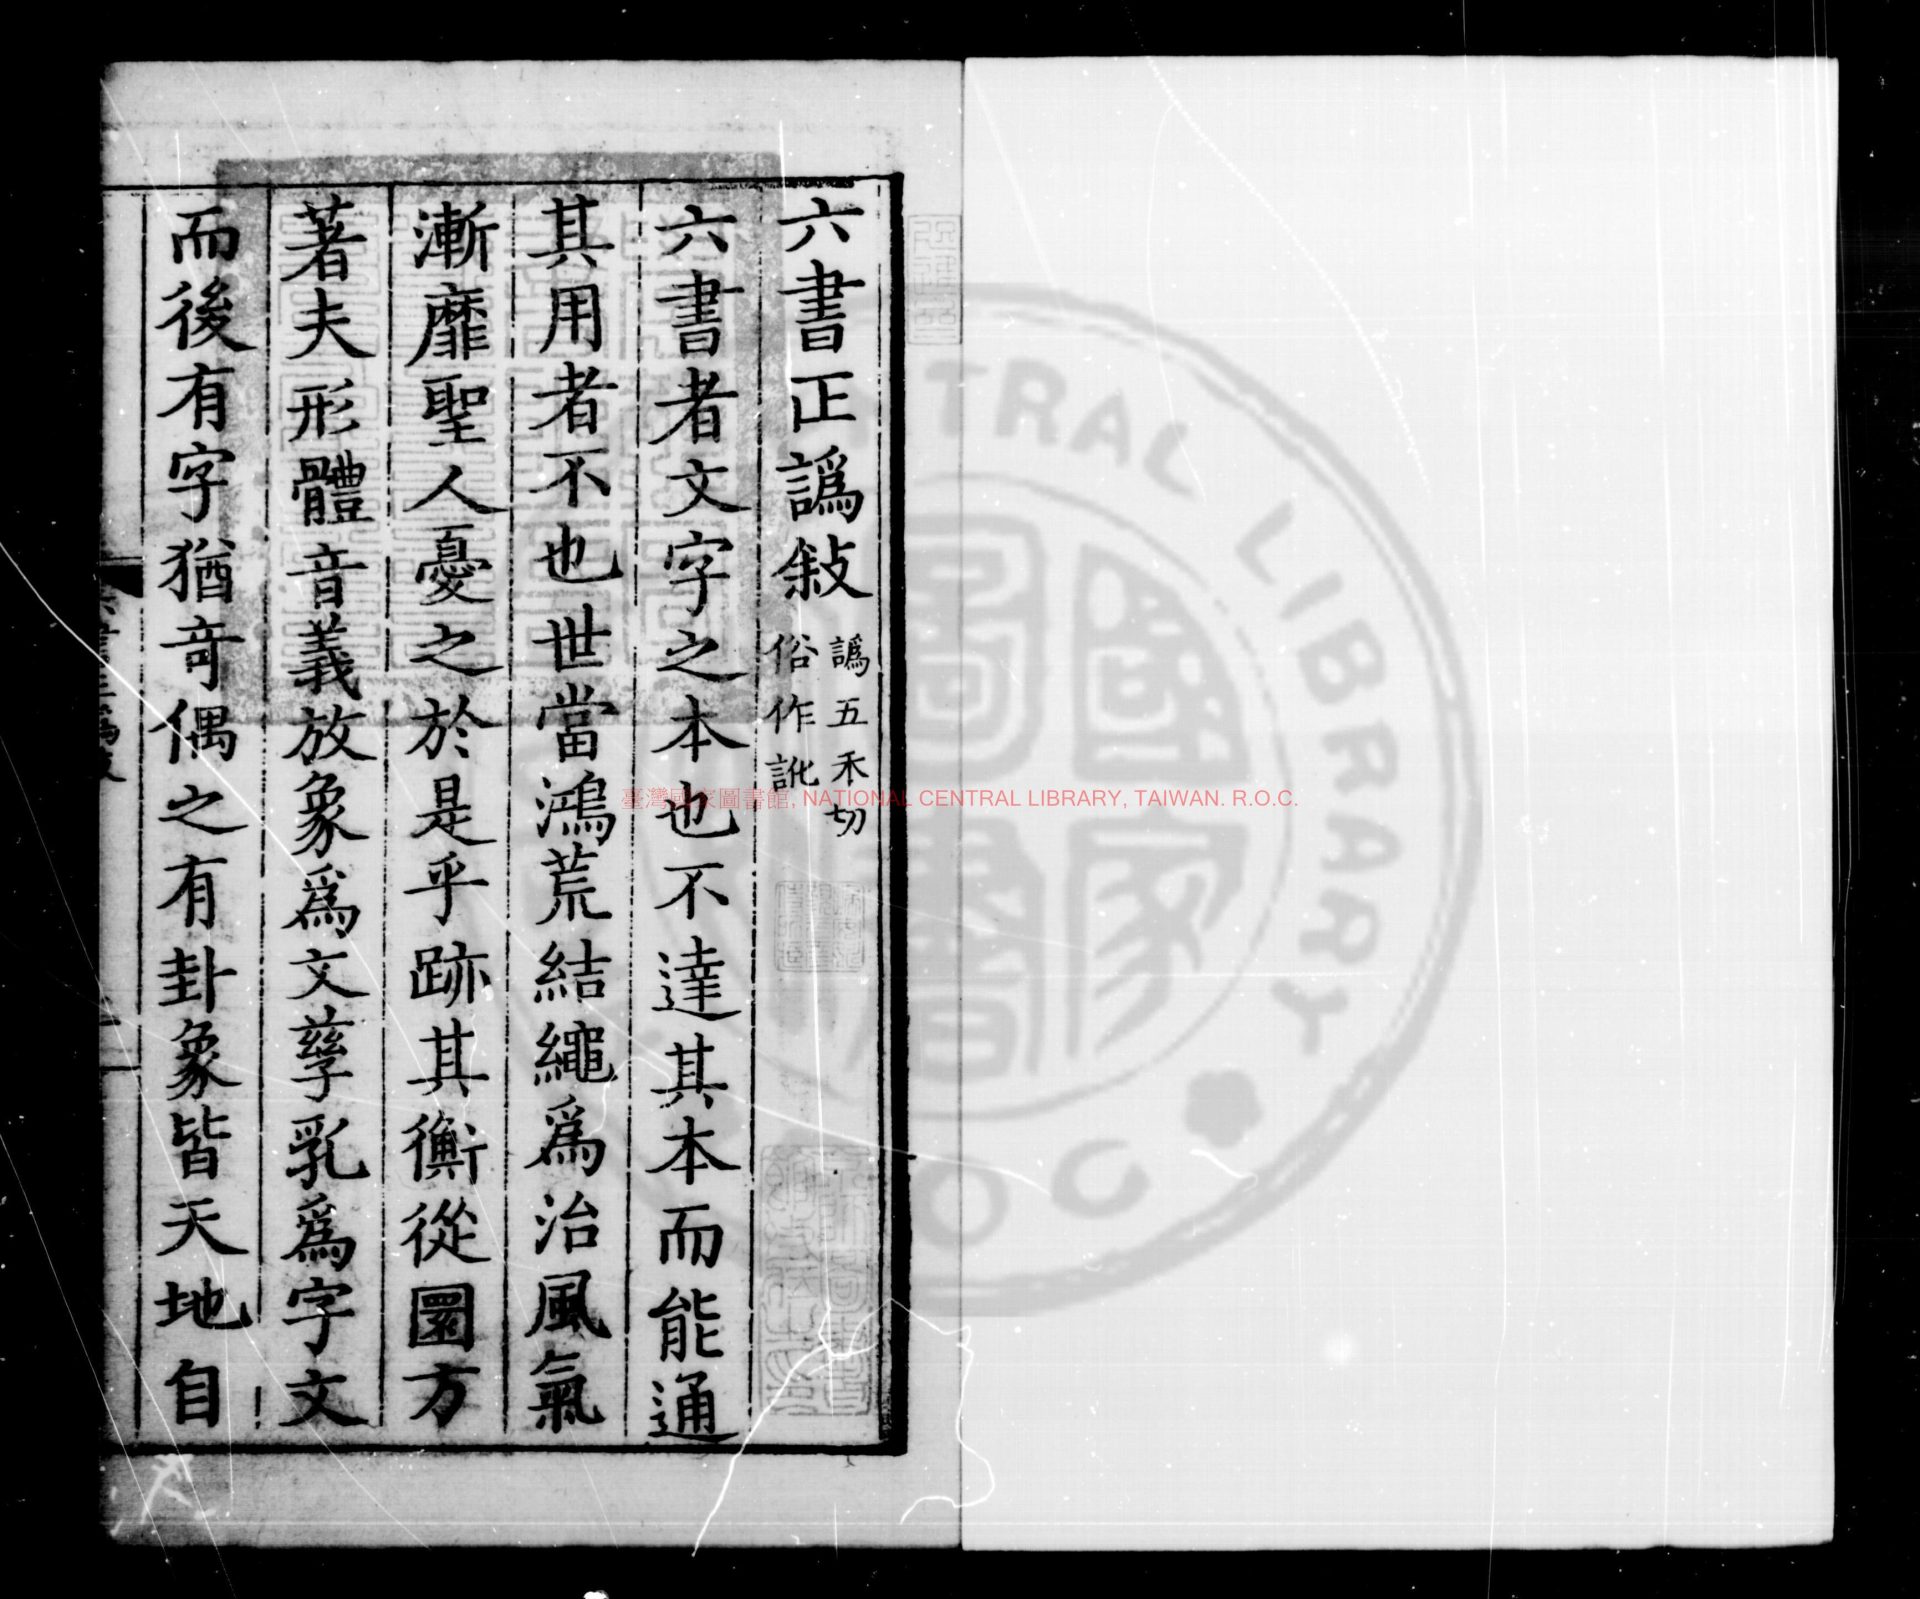 六書正譌敍 譌五禾切
俗作訛
六書者文字之本也不達其本而能通
其用者不也世當鴻荒結繩爲治風氣
漸靡聖人憂之於是乎跡其衡從圜方
著夫形體音義放象爲文孳乳爲字文
而後有字猶竒偶之有卦象皆天地自
臺灣國家圖書館, NATIONAL CENTRAL LIBRARY, TAIWAN. R.O.C.
國家圖書
CENTRAL LIBRARY